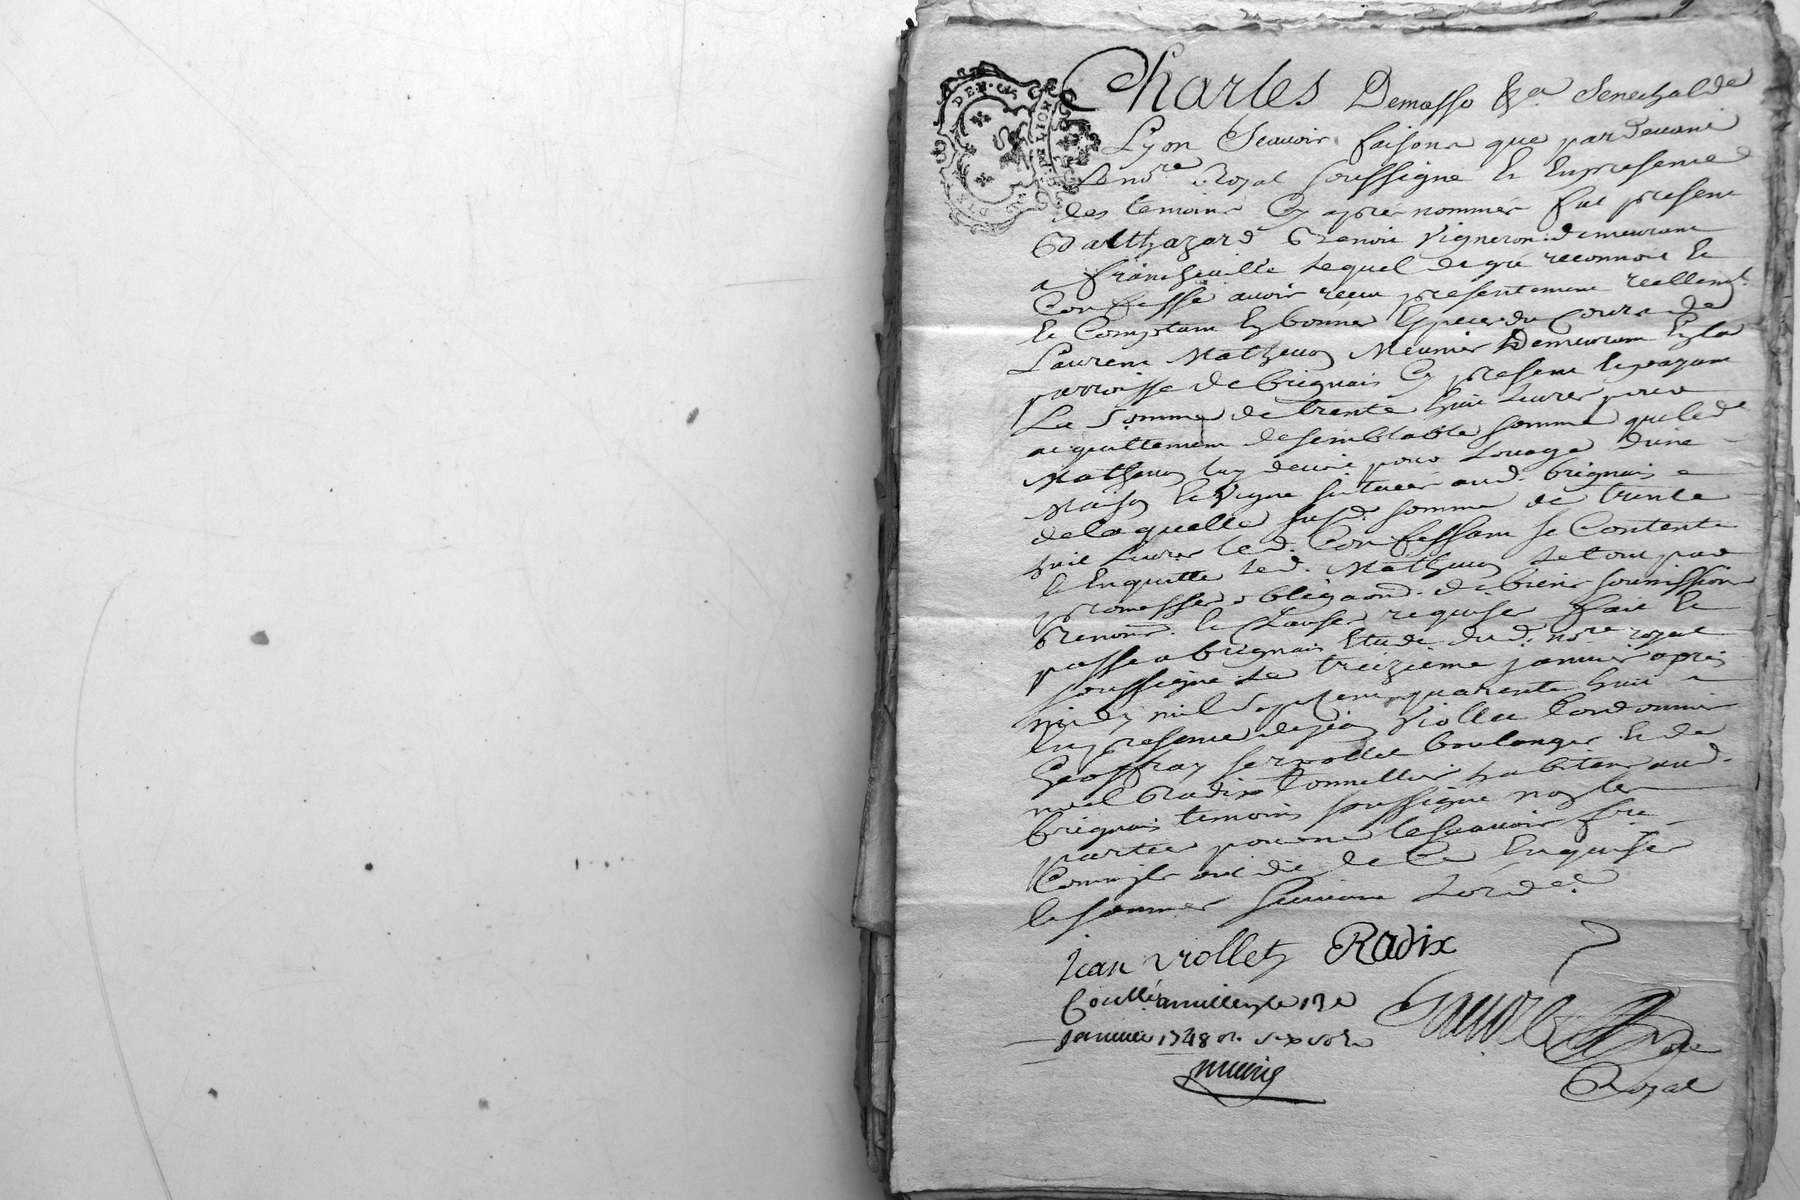 Charles Demasso &a Senechal de
Lyon Scavoir faisons que pardevant
Le no.re Royal soussigné Et En presence
des temoins Cy après nommés fut present
Balthazard Benoit Vigneron demeurant
a francheville Lequel de gré reconnoit Et
Confesse avoir reçu presentement reellem.t
Et Comptant En bonnes Especes du Cours de
Laurent Mathevon Meunier Demeurant En la
parroisse de brignais Cy present Et payant
La Somme de trente huit Livres pour
acquittement de semblable somme que led.
Mathevon luy devoit pour Louage d'une
Maison Et Vigne situees aud. brignais
de laquelle susd. somme de trente
huit Livres led. Confessant se Contente
Et En quitte led. Mathevon Le tout par
promesses obligaon. de biens soumissions
Renonn. Et Clauses requises fait Et
passé a brignais Etude dud. no.re royal
soussigné Le treizieme janvier après
midy mil sept cent quarante huit
En presence de jean Viollet Cordonnier
Geoffray boulanger Et de
Radix tonnellier habitans aud.
brignais temoins soussignés non les
parties pour ne le scavoir faire
Comme ils ont dit de Ce Enquises
Et sommées Suivant L'ord.e
jean viollet Radix
Contllé a millery le 13e
janvier 1748 R. six sols
DE LION
DEN.
no.re
Royal